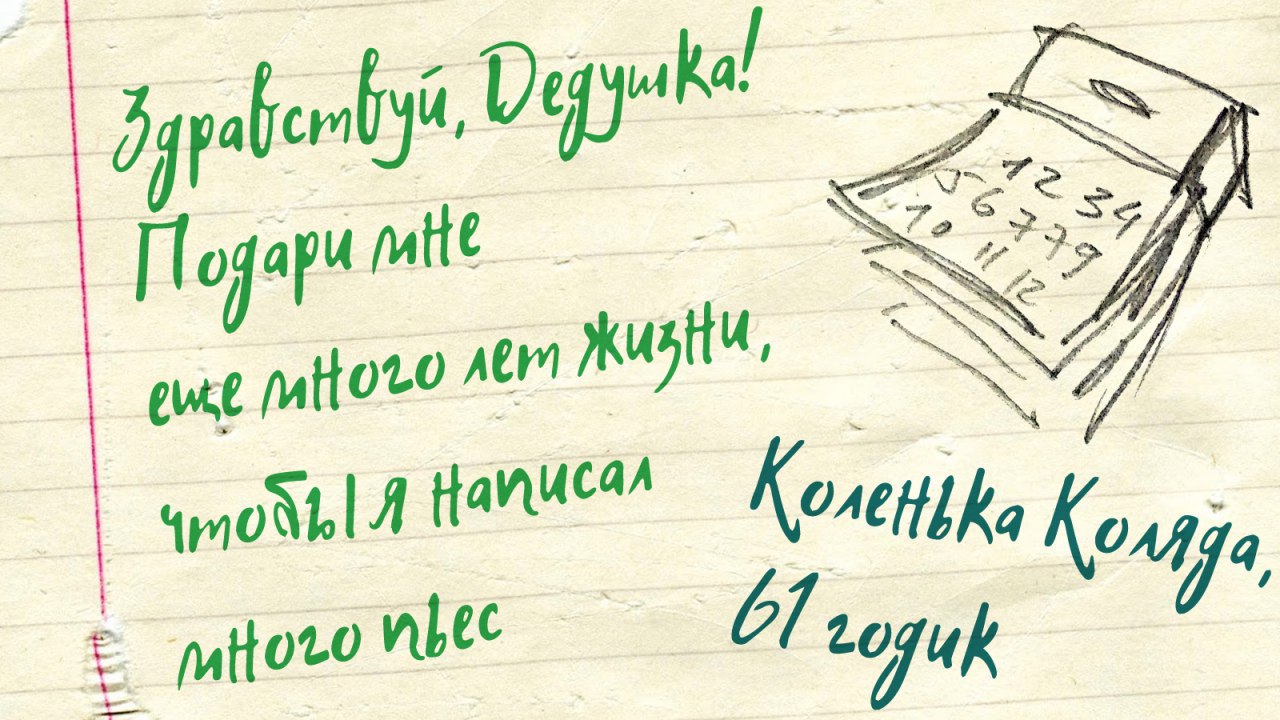 Здравствуй, Дедушка!
Подари мне
еще много лет жизни,
чтобы я написал
много пьес
1 2 3 4
5 6 7 7 9
10 11 12
Коленька Коляда,
61 годик